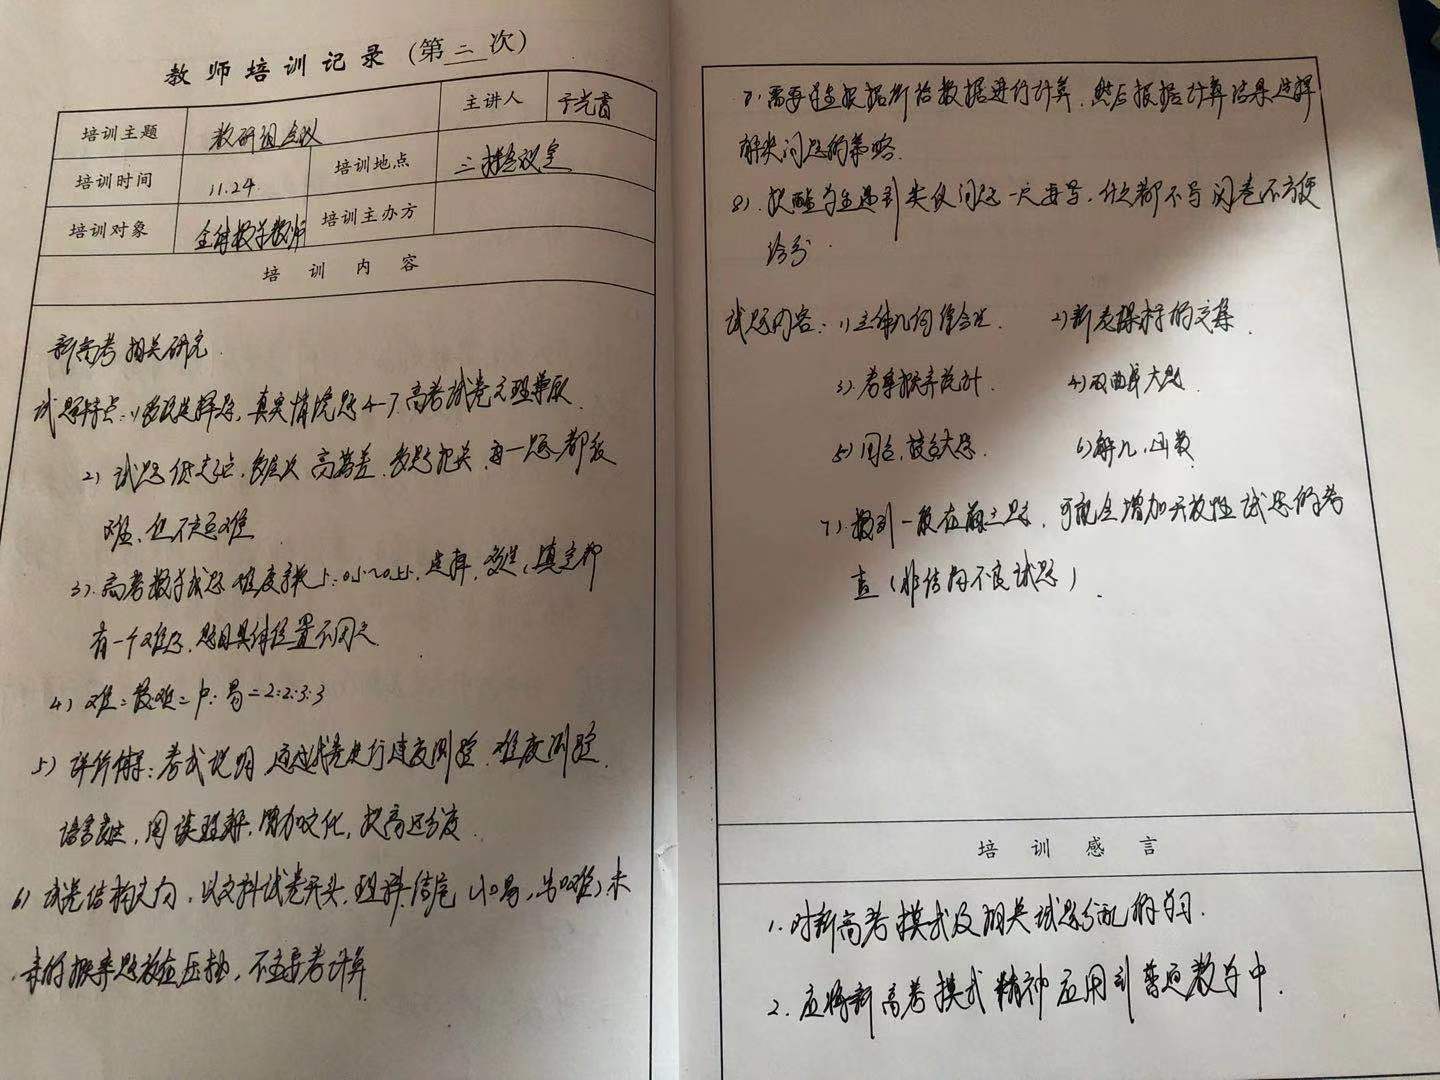 教师培训记录（第二次）
培训主题 教研组会议 主讲人
培训时间 11.24 培训地点 三楼会议室
培训对象 全体数学教师 培训主办方
培训内容
新高考相关研究
试题特点：1)多选选择题，真实情境题4-7 高考试卷文理兼顾
2) 试题低起点，多层次 高落差，多题把关，每一题都较
难，但不是难
3). 高考数学试题难度系数 0.5~0.55，选择，多选，填空都
有一个难题，题目具体位置不固定
4) 难：较难：中：易=2:2:3:3
5) 评价体系：考试说明 通过试卷进行速度测验 难度测验
语言表达，阅读理解，增加文化，提高区分度
6) 试卷结构文力，以文科试卷开头，理科结尾（入口易，出口难）未
来的概率题放在压轴，不主要考计算
7. 需要学生根据所给数据进行计算，然后根据计算结果选择
解决问题的策略.
8). 提醒学生遇到类似问题一定要写，什么都不写阅卷不方便
给分.
试题内容：1)立体几何结合 2)新老课标的交集
3)着重概率统计. 4)双曲线大题
5) 6)解几，函数
7). 数列一般在前三题，可能会增加开放性试题的考
查（非结构不良试题）.
培训感言
1. 对新高考模式及相关试题分配的学习.
2. 应将新高考模式精神应用到普通教学中.